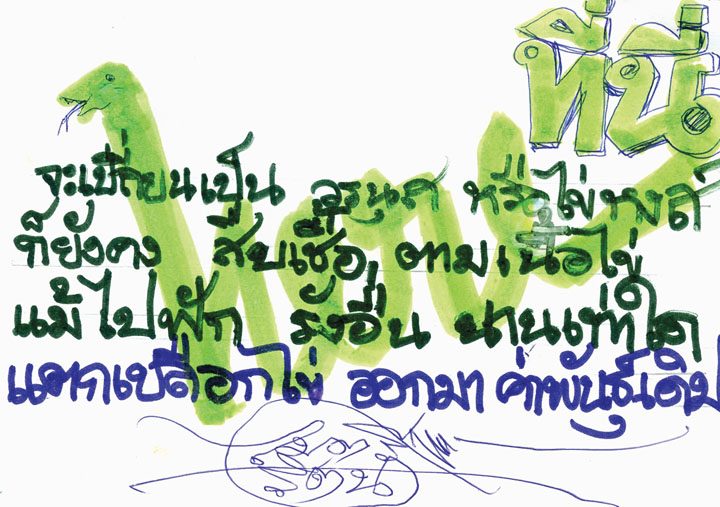 ที่นี่
จะเปลี่ยนเป็น หรือไข่หงส์
ก็ยังคง สืบเชื้อ ตามเนื้อไข่
แม้ไปฟัก รังอื่น นานเท่าใด
แตกเปลือกไข่ ออกมา ค่าพันธุ์เดิม